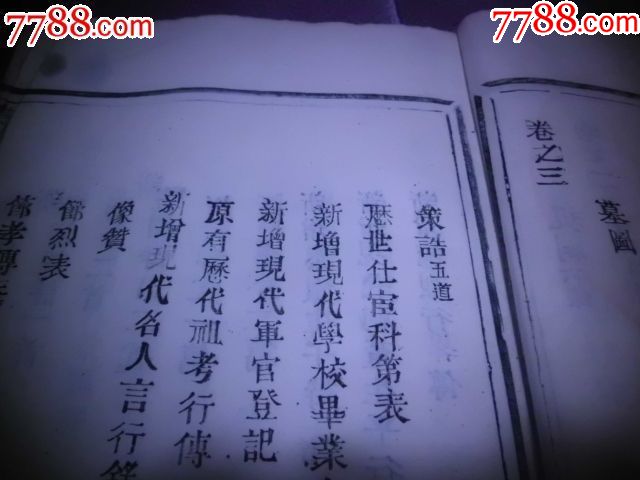 7788.com
7788.com
卷之三
墓圖
策誥五道
歷世仕宦科第表
新增現代學校畢業
新增現代軍官登記
原有歷代祖考行傳
新增現代名人言行錄
像贊
節烈表
節孝傳